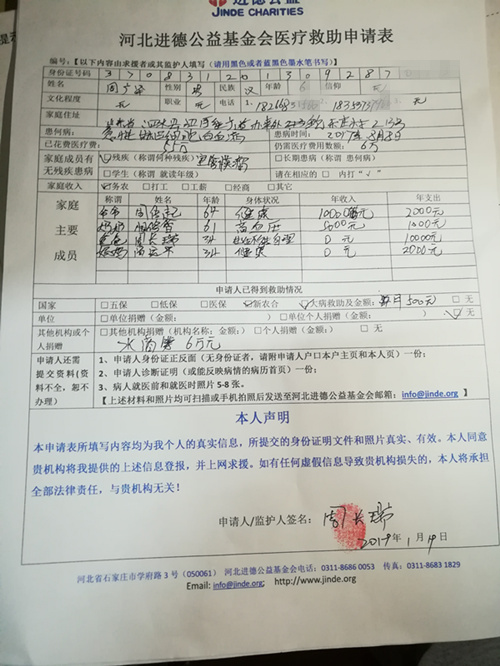 进德公益
JINDE CHARITIES
河北进德公益基金会医疗救助申请表
编号:【以下内容由求援者或其监护人填写(请用黑色或者蓝黑色墨水笔书写)】
身份证号码
姓名 周 男 民族 汉 年龄 6 信仰 无
文化程度 无 职业 无 电话
家庭住址
患何病: 急性 白血病 患病时间: 2017年8月8日
已花费医疗费: 55万 仍需医疗费用数额: 6万
家庭成员有无残疾患病 残疾(称谓何种残疾) 长期患病(称谓 患何病)
学生(称谓 就读年级) 请在相应的 □ 内打“√”
家庭收入 务农 打工 工薪 经商 其它
家庭主要成员 称谓 年龄 身体状况 年收入 年支出
爷爷 64 健康 10000元 2000元
奶奶 61 高血压 5000元 1000元
爸爸 周长瑞 34 0元 10000元
妈妈 34 健康 0元 2000元
申请人已得到救助情况
国家 五保 低保 医保 新农合 大病救助及金额: 每月500元 无
单位 单位捐赠(金额: ) 单位个人捐赠(金额: ) 无
其他机构或个人捐赠 其他机构捐赠(机构名称: 金额: ) 个人捐赠(金额: ) 无
水滴筹 6万元
申请人还需提交资料(资料不全,恕不办理)
1、申请人身份证正反面(无身份证者,请附申请人户口本户主页和本人页)一份;
2、申请人诊断证明(或能反映病情的病历首页)一份;
3、病人就医前和就医时照片 5-8 张。
【上述材料和照片均可扫描或手机拍照后发送至河北进德公益基金会邮箱: info@jinde.org 】
本人声明
本申请表所填写内容均为我个人的真实信息,所提交的身份证明文件和照片真实、有效。本人同意
贵机构将我提供的上述信息登报,并上网求援。如有任何虚假信息导致贵机构损失的,本人将承担
全部法律责任,与贵机构无关!
申请人/监护人签名: 周长瑞
2019年 1月 19日
河北省石家庄市学府路 3 号(050061) 河北进德公益基金会 电话:0311-8686 0053 传真:0311-8683 1829
Email: info@jinde.org; http://www.jinde.org